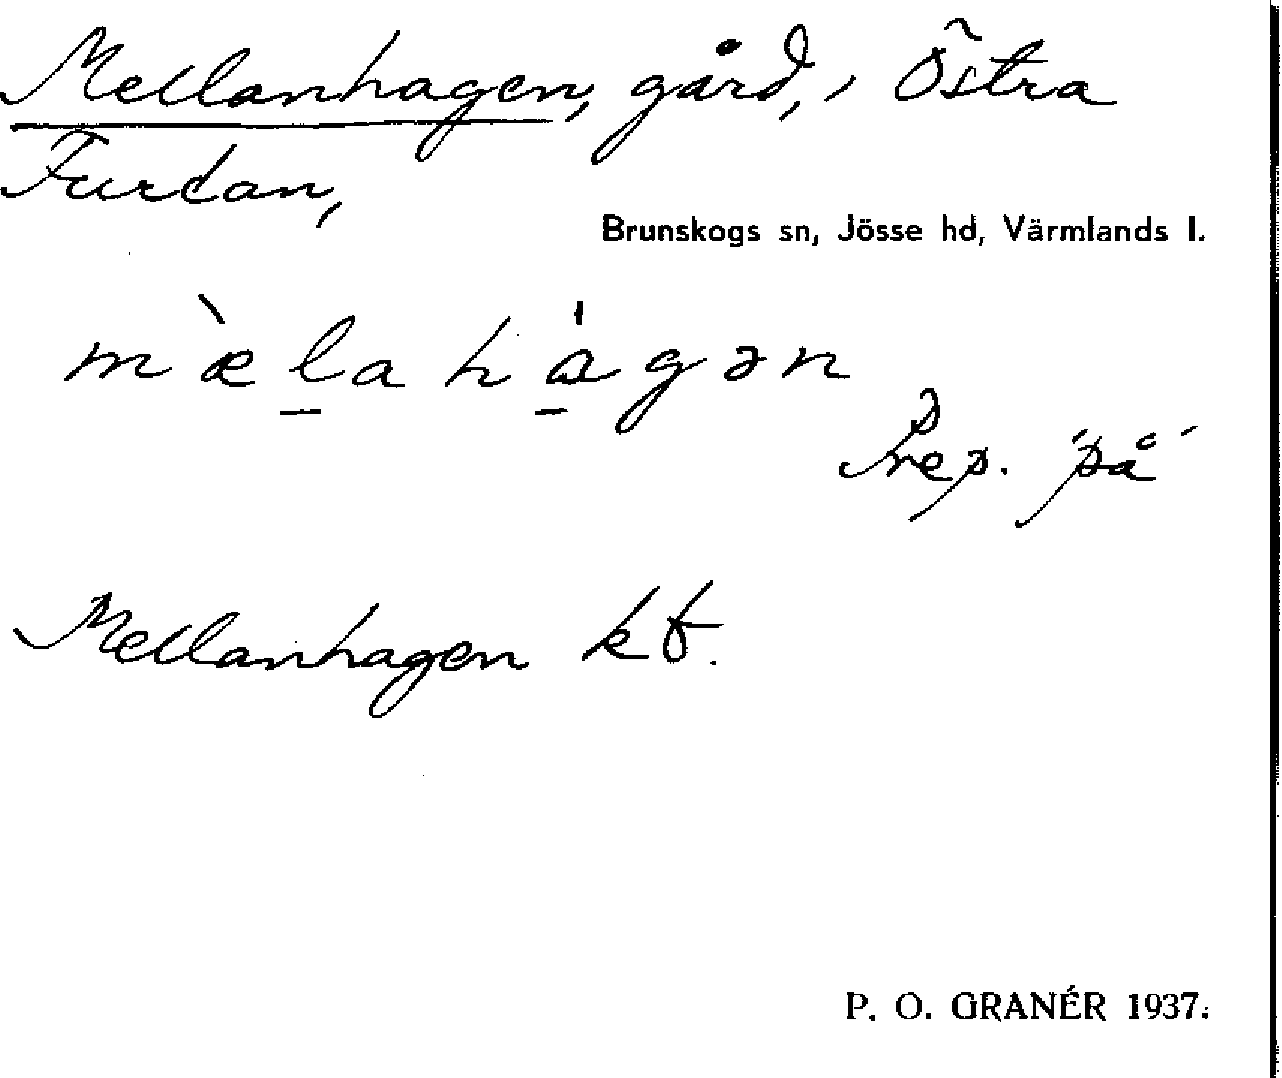 Mellanhagen, gård, i Östra
Furtan,
Brunskogs sn, Jösse hd, Värmlands l.
mæ̀l̲ahá̲gən
Prep. 'på'
Mellanhagen kb.
P. O. GRANÉR 1937.